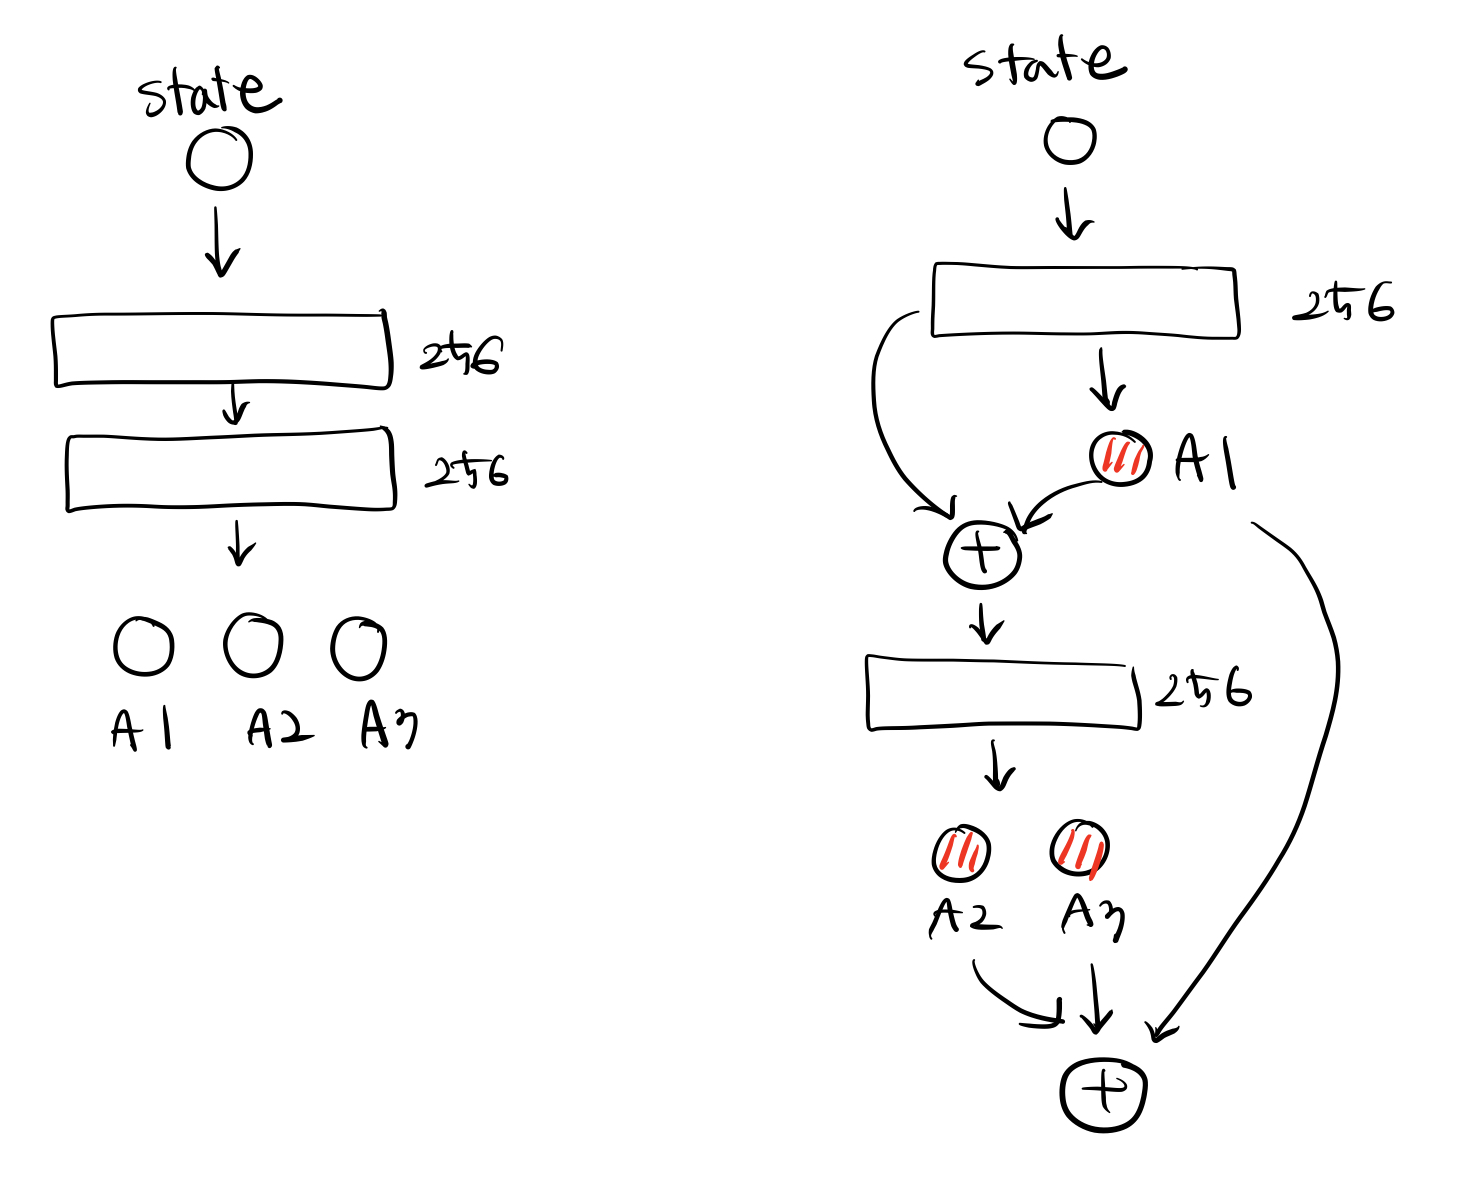 state
256
256
A1 A2 A3
state
256
A1
+
256
A2 A3
+